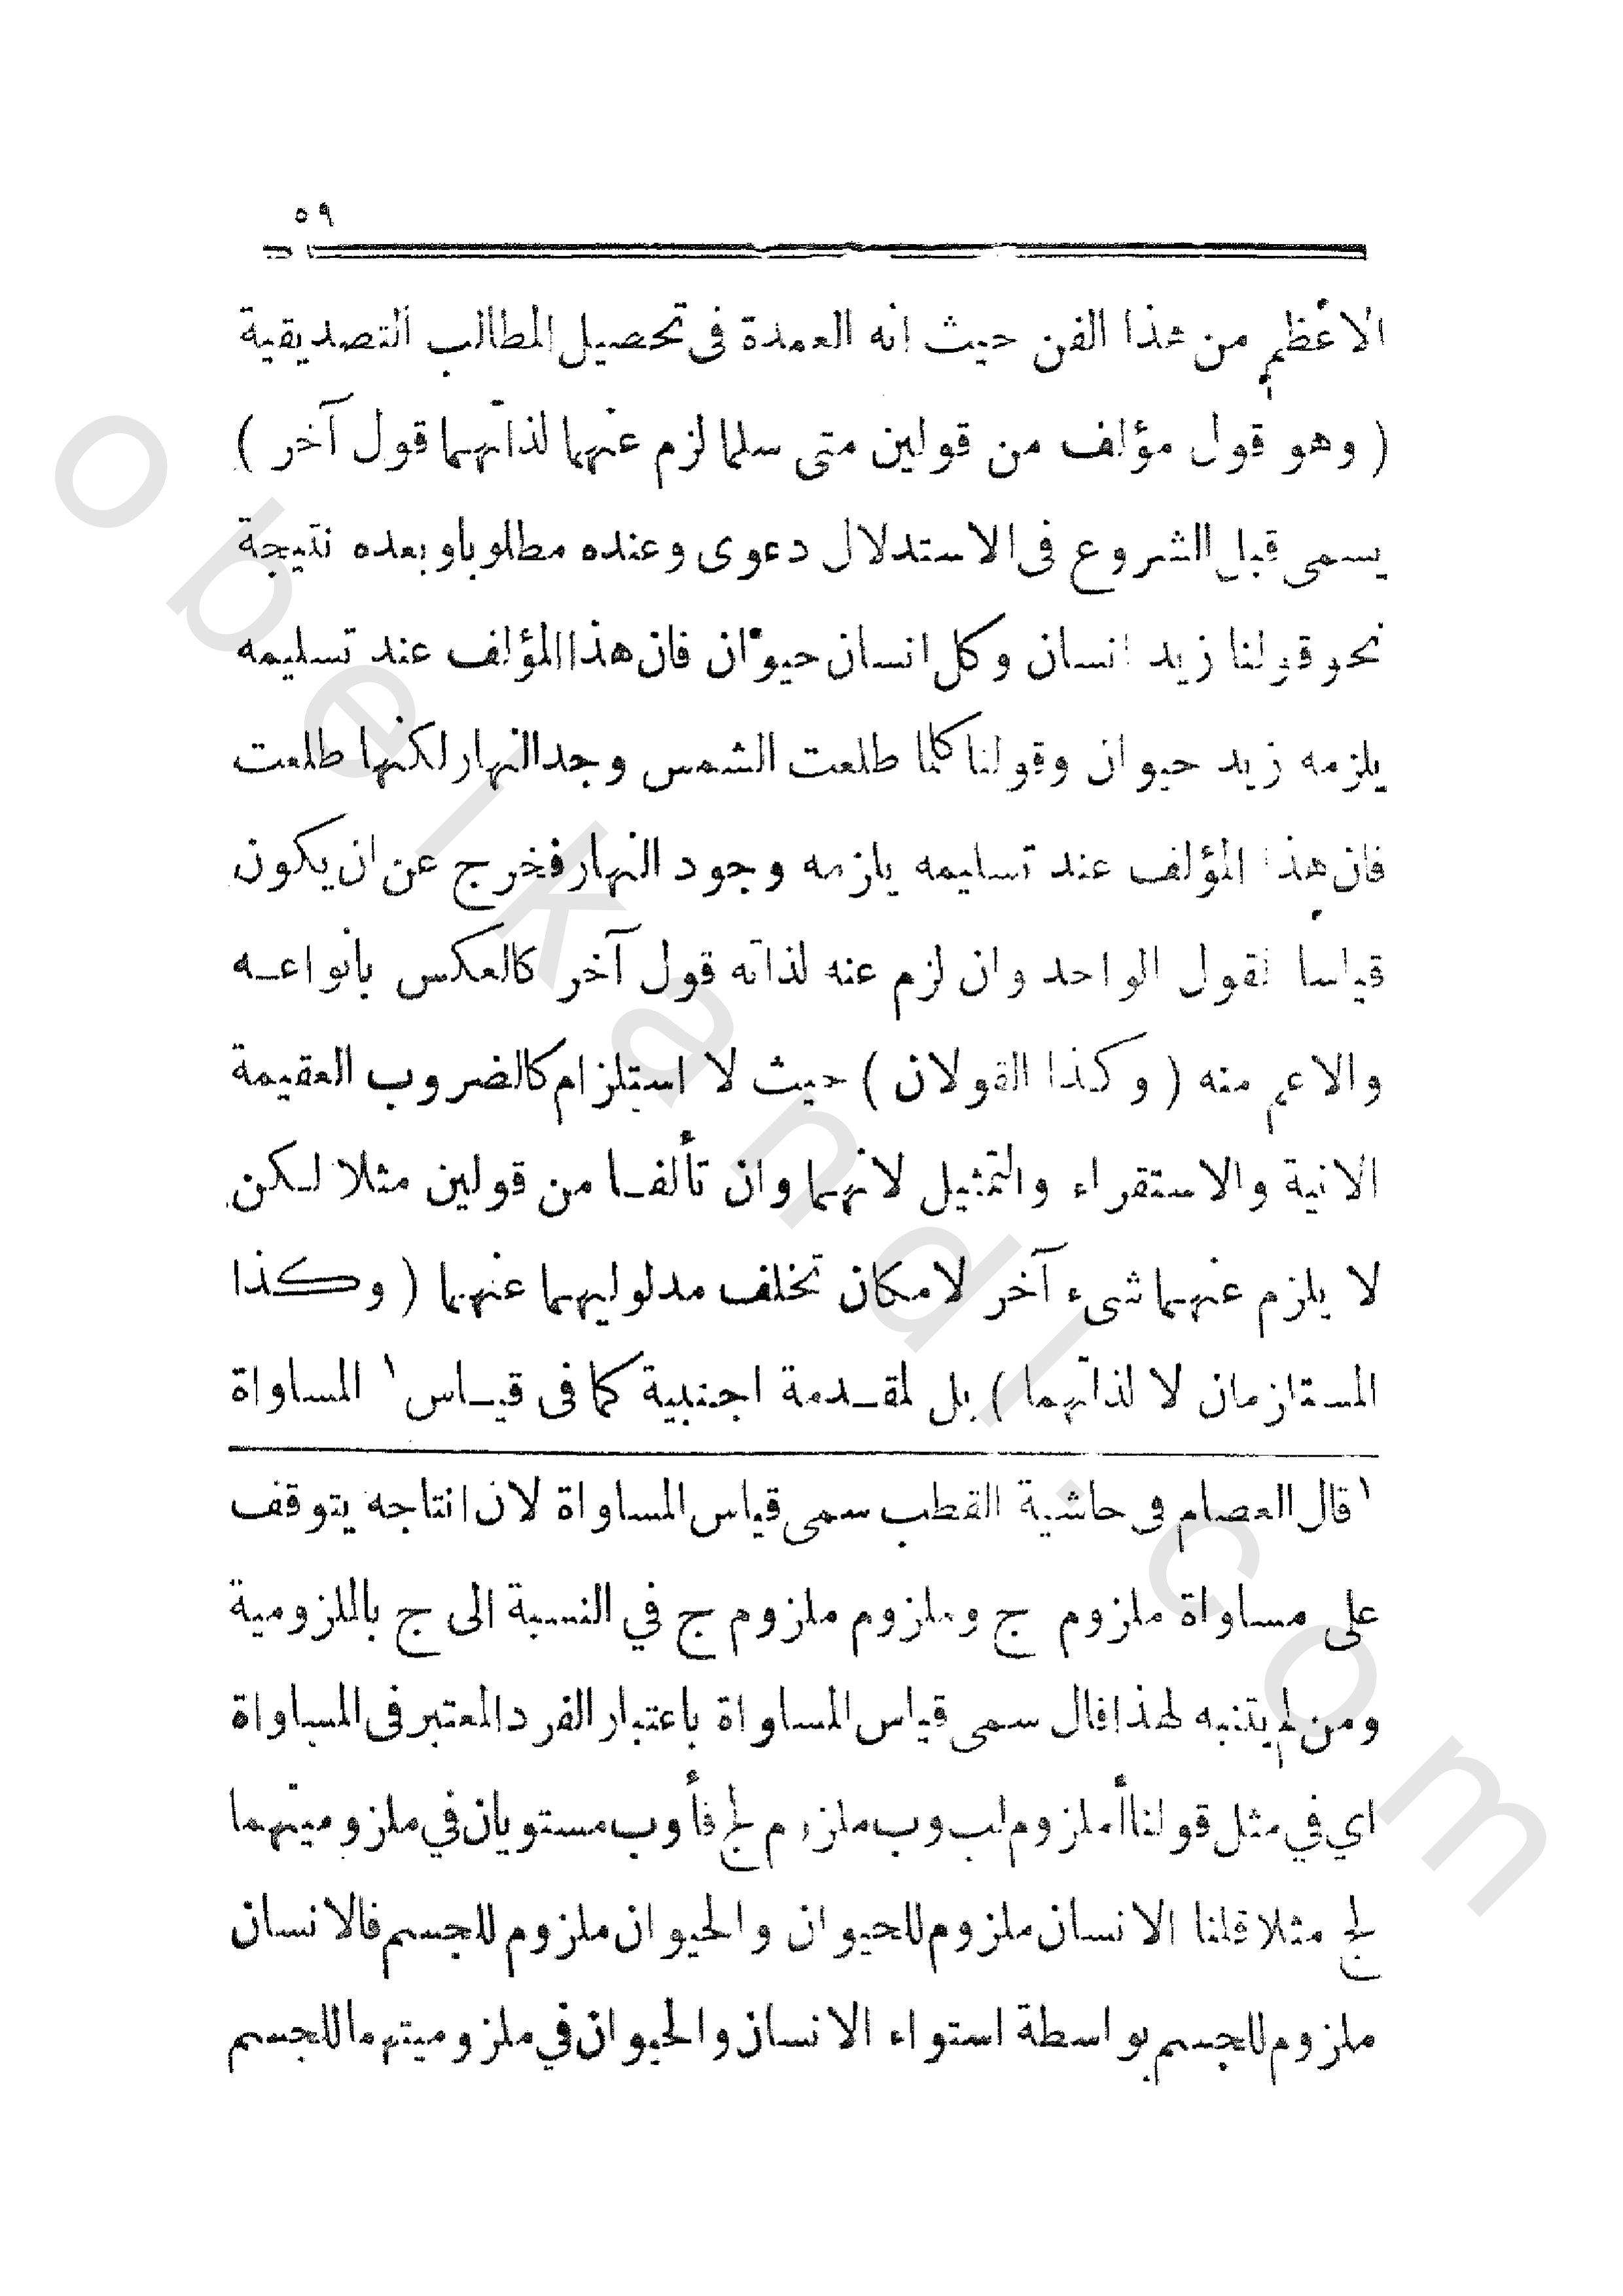 ٥٩
الاعظم من هذا الفن حيث انه العمدة فى تحصيل المطالب التصديقية
( وهو قول مؤلف من قولين متى سلما لزم عنهما لذاتهما قول آخر )
يسمى قبل الشروع فى الاستدلال دعوى وعنده مطلوبا وبعده نتيجة
نحو قولنا زيد انسان وكل انسان حيوان فان هذا المؤلف عند تسليمه
يلزمه زيد حيوان وقولنا كلما طلعت الشمس وجد النهار لكنها طلعت
فان هذا المؤلف عند تسليمه يلزمه وجود النهار فخرج عن ان يكون
قياسا القول الواحد وان لزم عنه لذاته قول آخر كالعكس بأنواعه
والاعم منه ( وكذا القولان ) حيث لا استلزام كالضروب العقيمة
الاتية والاستقراء والتمثيل لانهما وان تألفا من قولين مثلا لكن
لا يلزم عنهما شىء آخر لامكان تخلف مدلوليهما عنهما ( وكذا
المستلزمان لا لذاتهما ) بل لمقدمة اجنبية كما فى قياس ١ المساواة
١ قال العصام فى حاشية القطب سمى قياس المساواة لان انتاجه يتوقف
على مساواة ملزوم ج وملزوم ملزوم ج في النسبة الى ج باللزومية
ومن لم يتنبه لهذا قال سمى قياس المساواة باعتبار الفرد المعتبر فى المساواة
اي في مثل قولنا أ ملزوم لب وب ملزوم لج فأ وب مستويان في ملزوميتهما
لج مثلا قلنا الانسان ملزوم للحيوان والحيوان ملزوم للجسم فالانسان
ملزوم للجسم بواسطة استواء الانسان والحيوان في ملزوميتهما للجسم
obeikandl.com